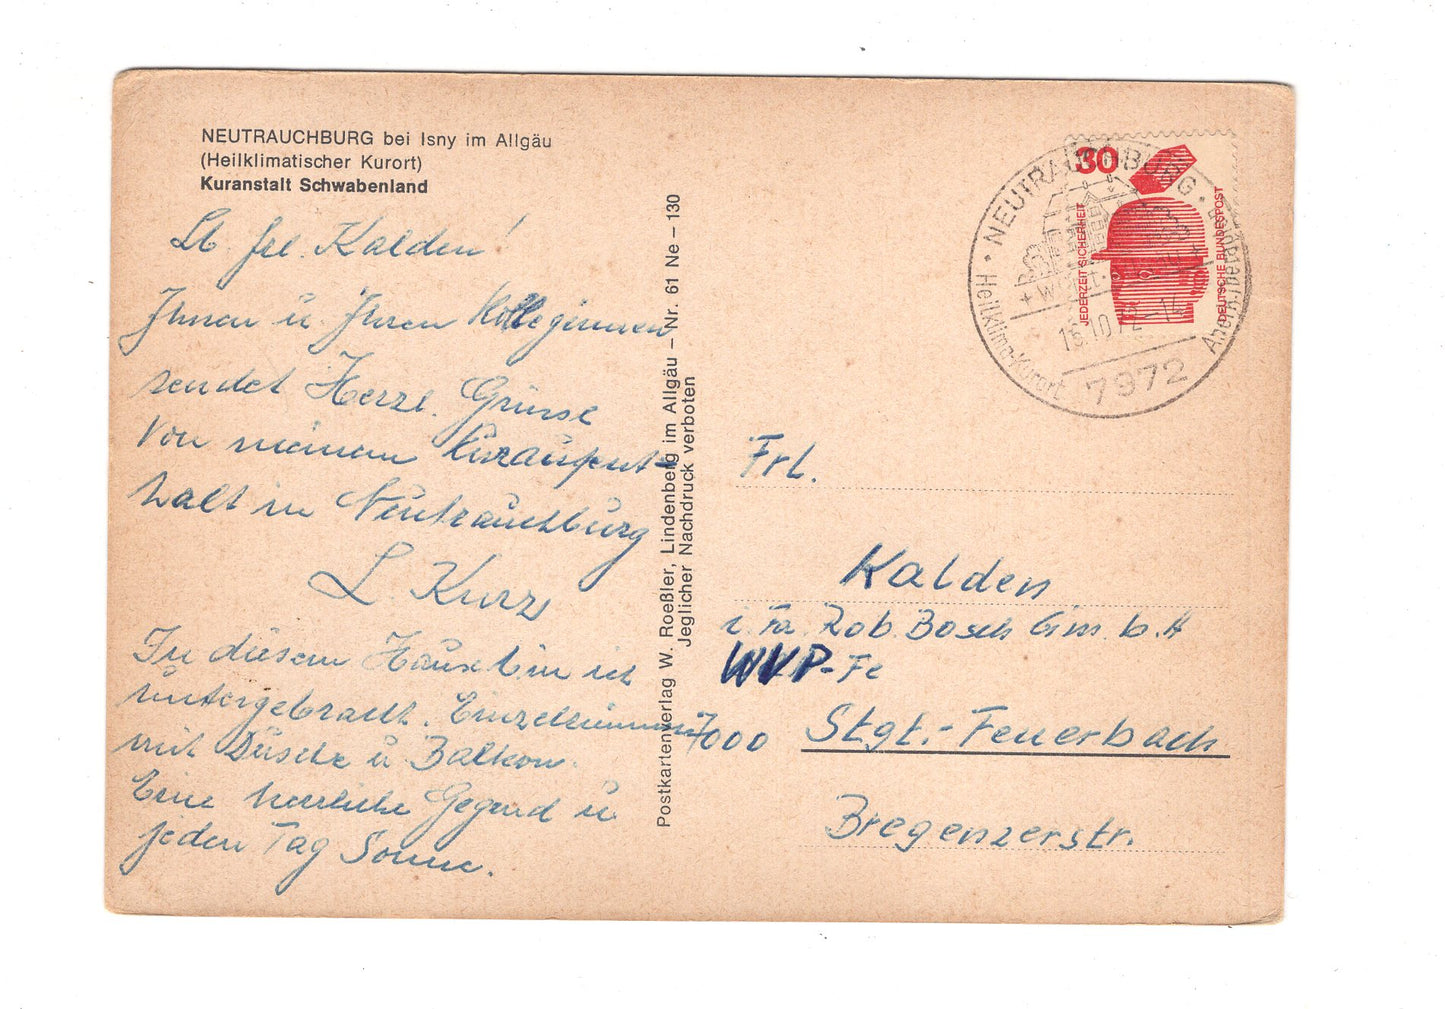 NEUTRAUCHBURG bei Isny im Allgäu
(Heilklimatischer Kurort)
Kuranstalt Schwabenland
Lb. Frl. Kalden!
Ihnen u. Ihren Kolleginnen
sendet Herzl. Grüsse
von meinem Kuraufent-
halt in Neutrauchburg
L. Kurz
In diesem Hause bin ich
untergebracht. Einzelzimmer
mit Dusche u. Balkon.
Eine herrliche Gegend u.
jeden Tag Sonne.
Postkartenverlag W. Roeßler, Lindenberg im Allgäu – Nr. 61 Ne – 130
Jeglicher Nachdruck verboten
30
JEDERZEIT SICHERHEIT
DEUTSCHE BUNDESPOST
NEUTRAUCHBURG
Heilklima-Kurort
16.10.72-14
7972
Frl.
Kalden
i. Fa. Rob. Bosch Gm.b.H
WVP-Fe
7000 Stgt.-Feuerbach
Bregenzerstr.